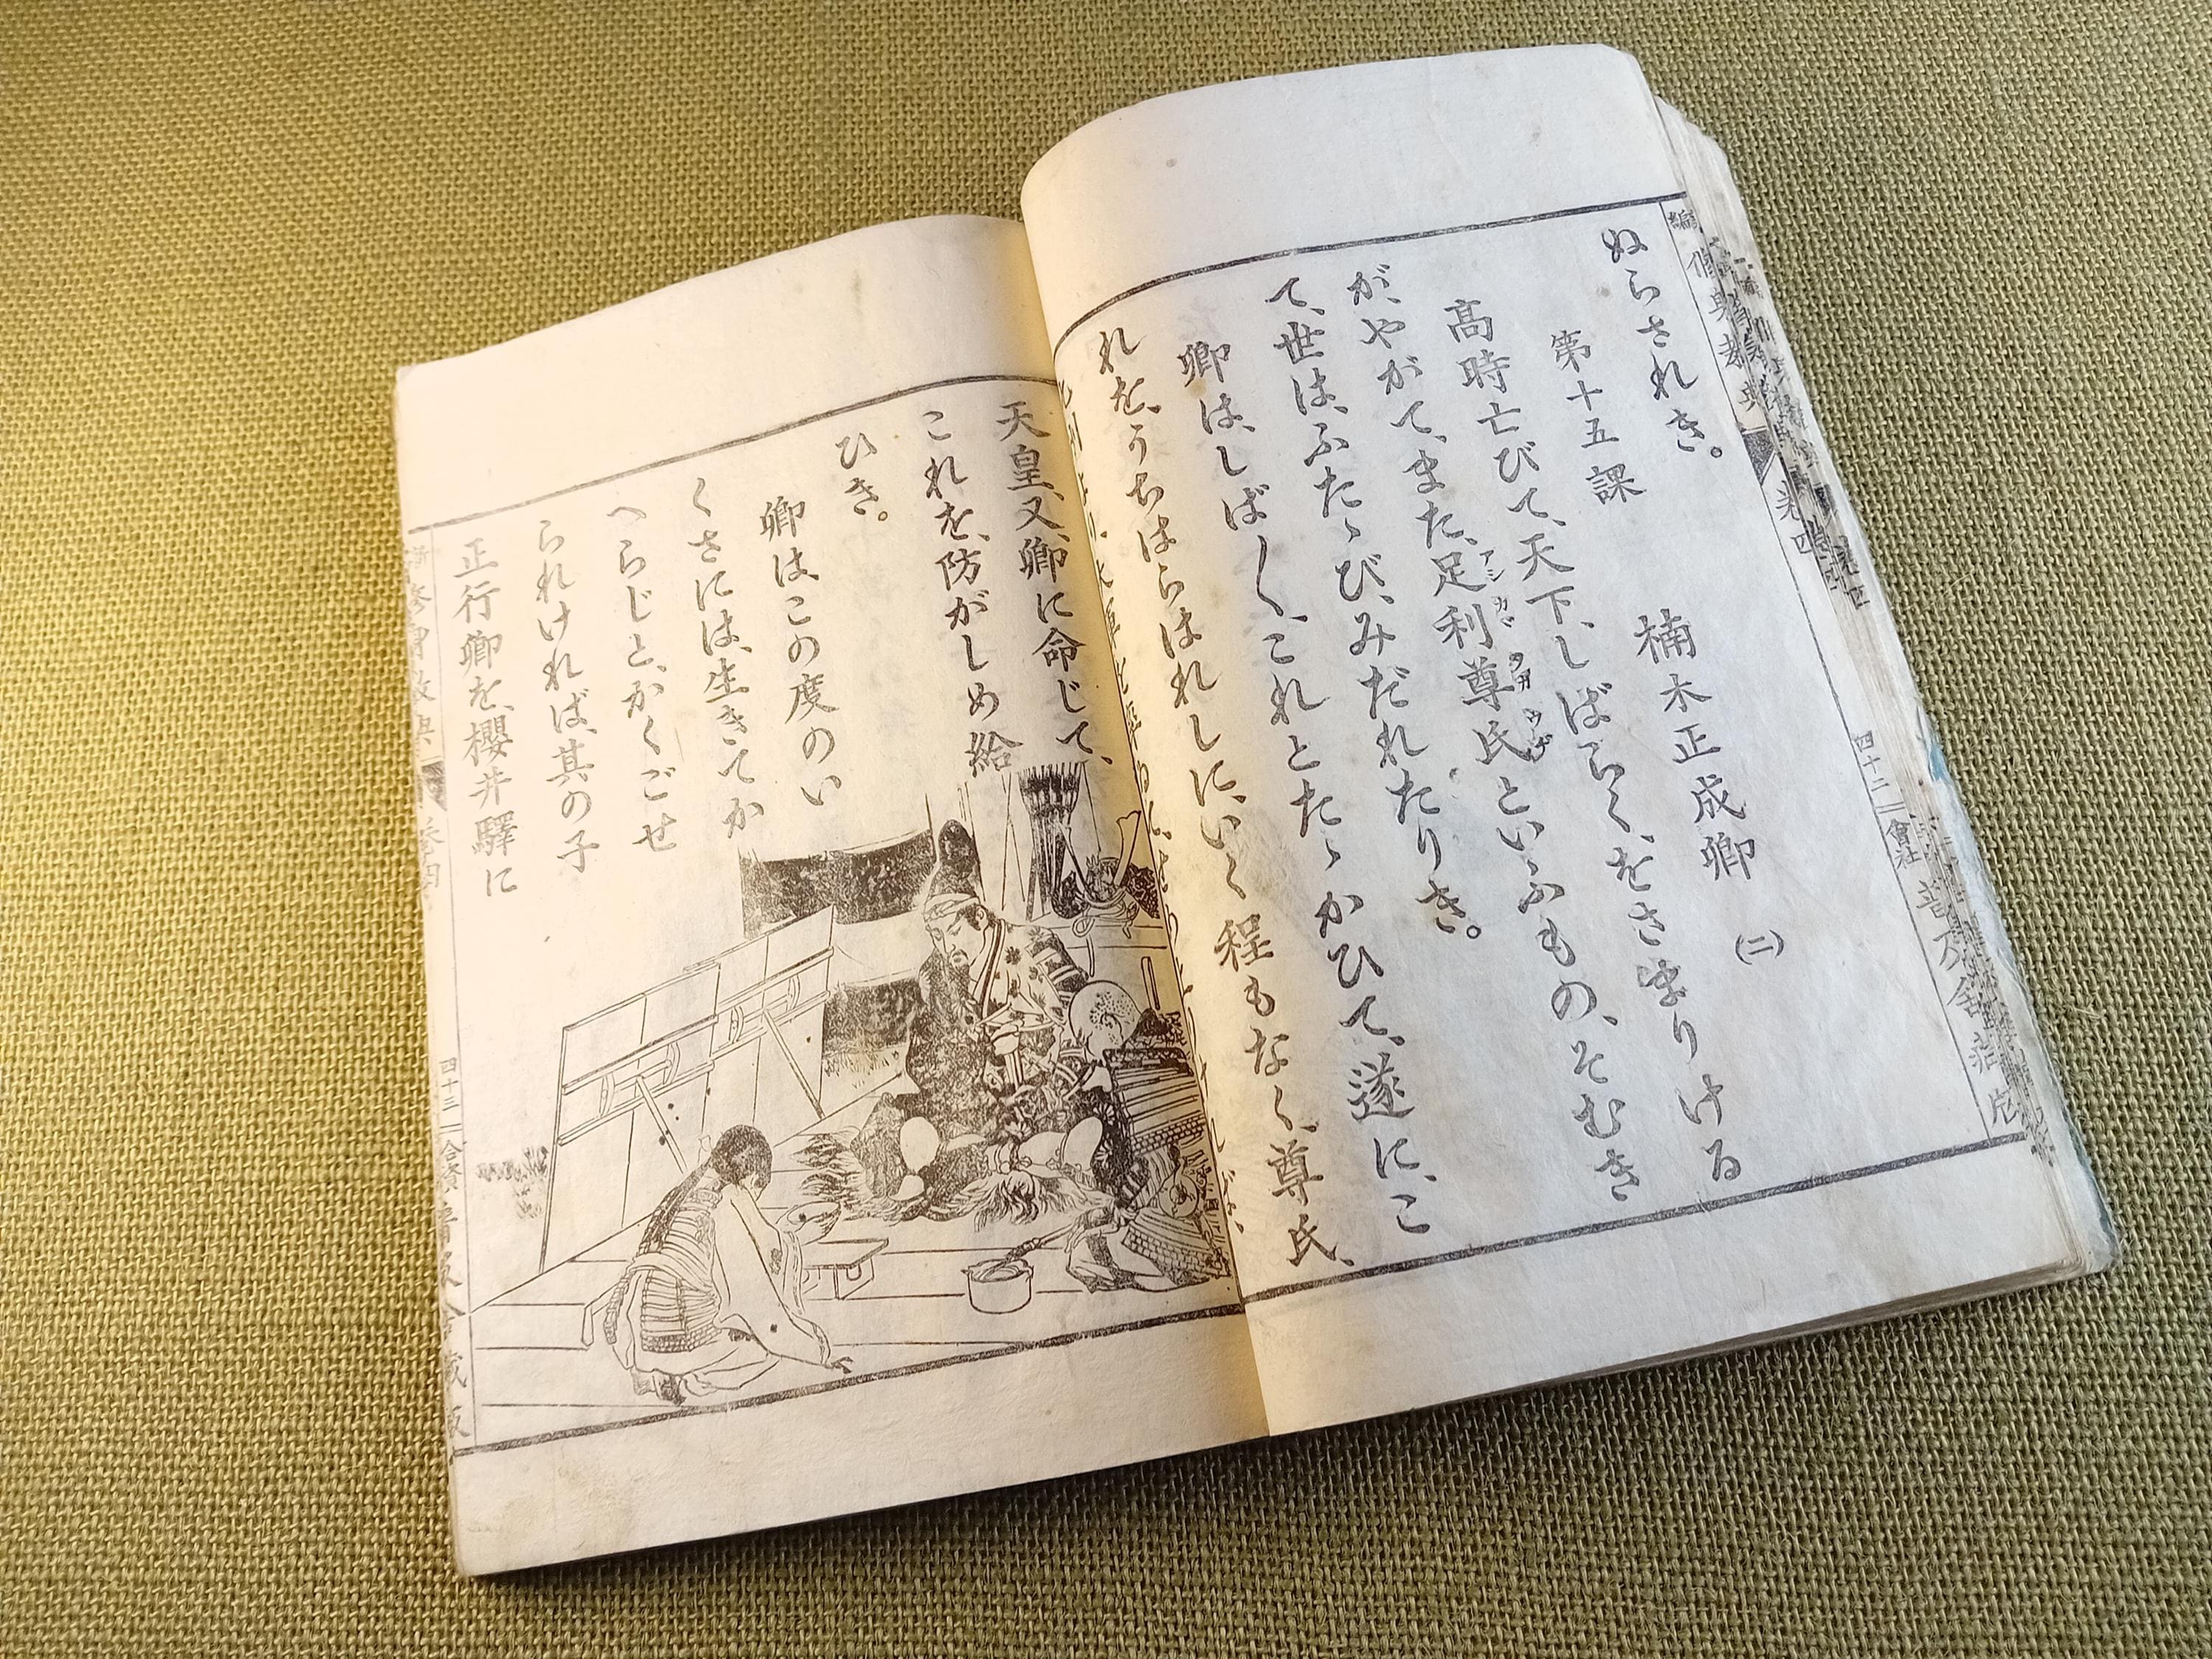 ぬらされき。
第十五課　楠木正成卿(二)
高時亡びて、天下、しばらく、をさまりける
が、やがて、また、足利尊氏といふもの、そむき
アシカガタカウヂ
て、世は、ふたゝび、みだれたりき。
卿は、しば〳〵、これとたゝかひて、遂に、こ
れを、うちはらはれしに、いく程もなく、尊氏、
天皇、又、卿に命じて、
これを、防がしめ給
ひき。
卿は、この度のい
くさには、生きてか
へらじと、かくごせ
られければ、其の子
正行卿を、櫻井驛に
修身教典
卷四
四十二
會社
普及舍
四十三